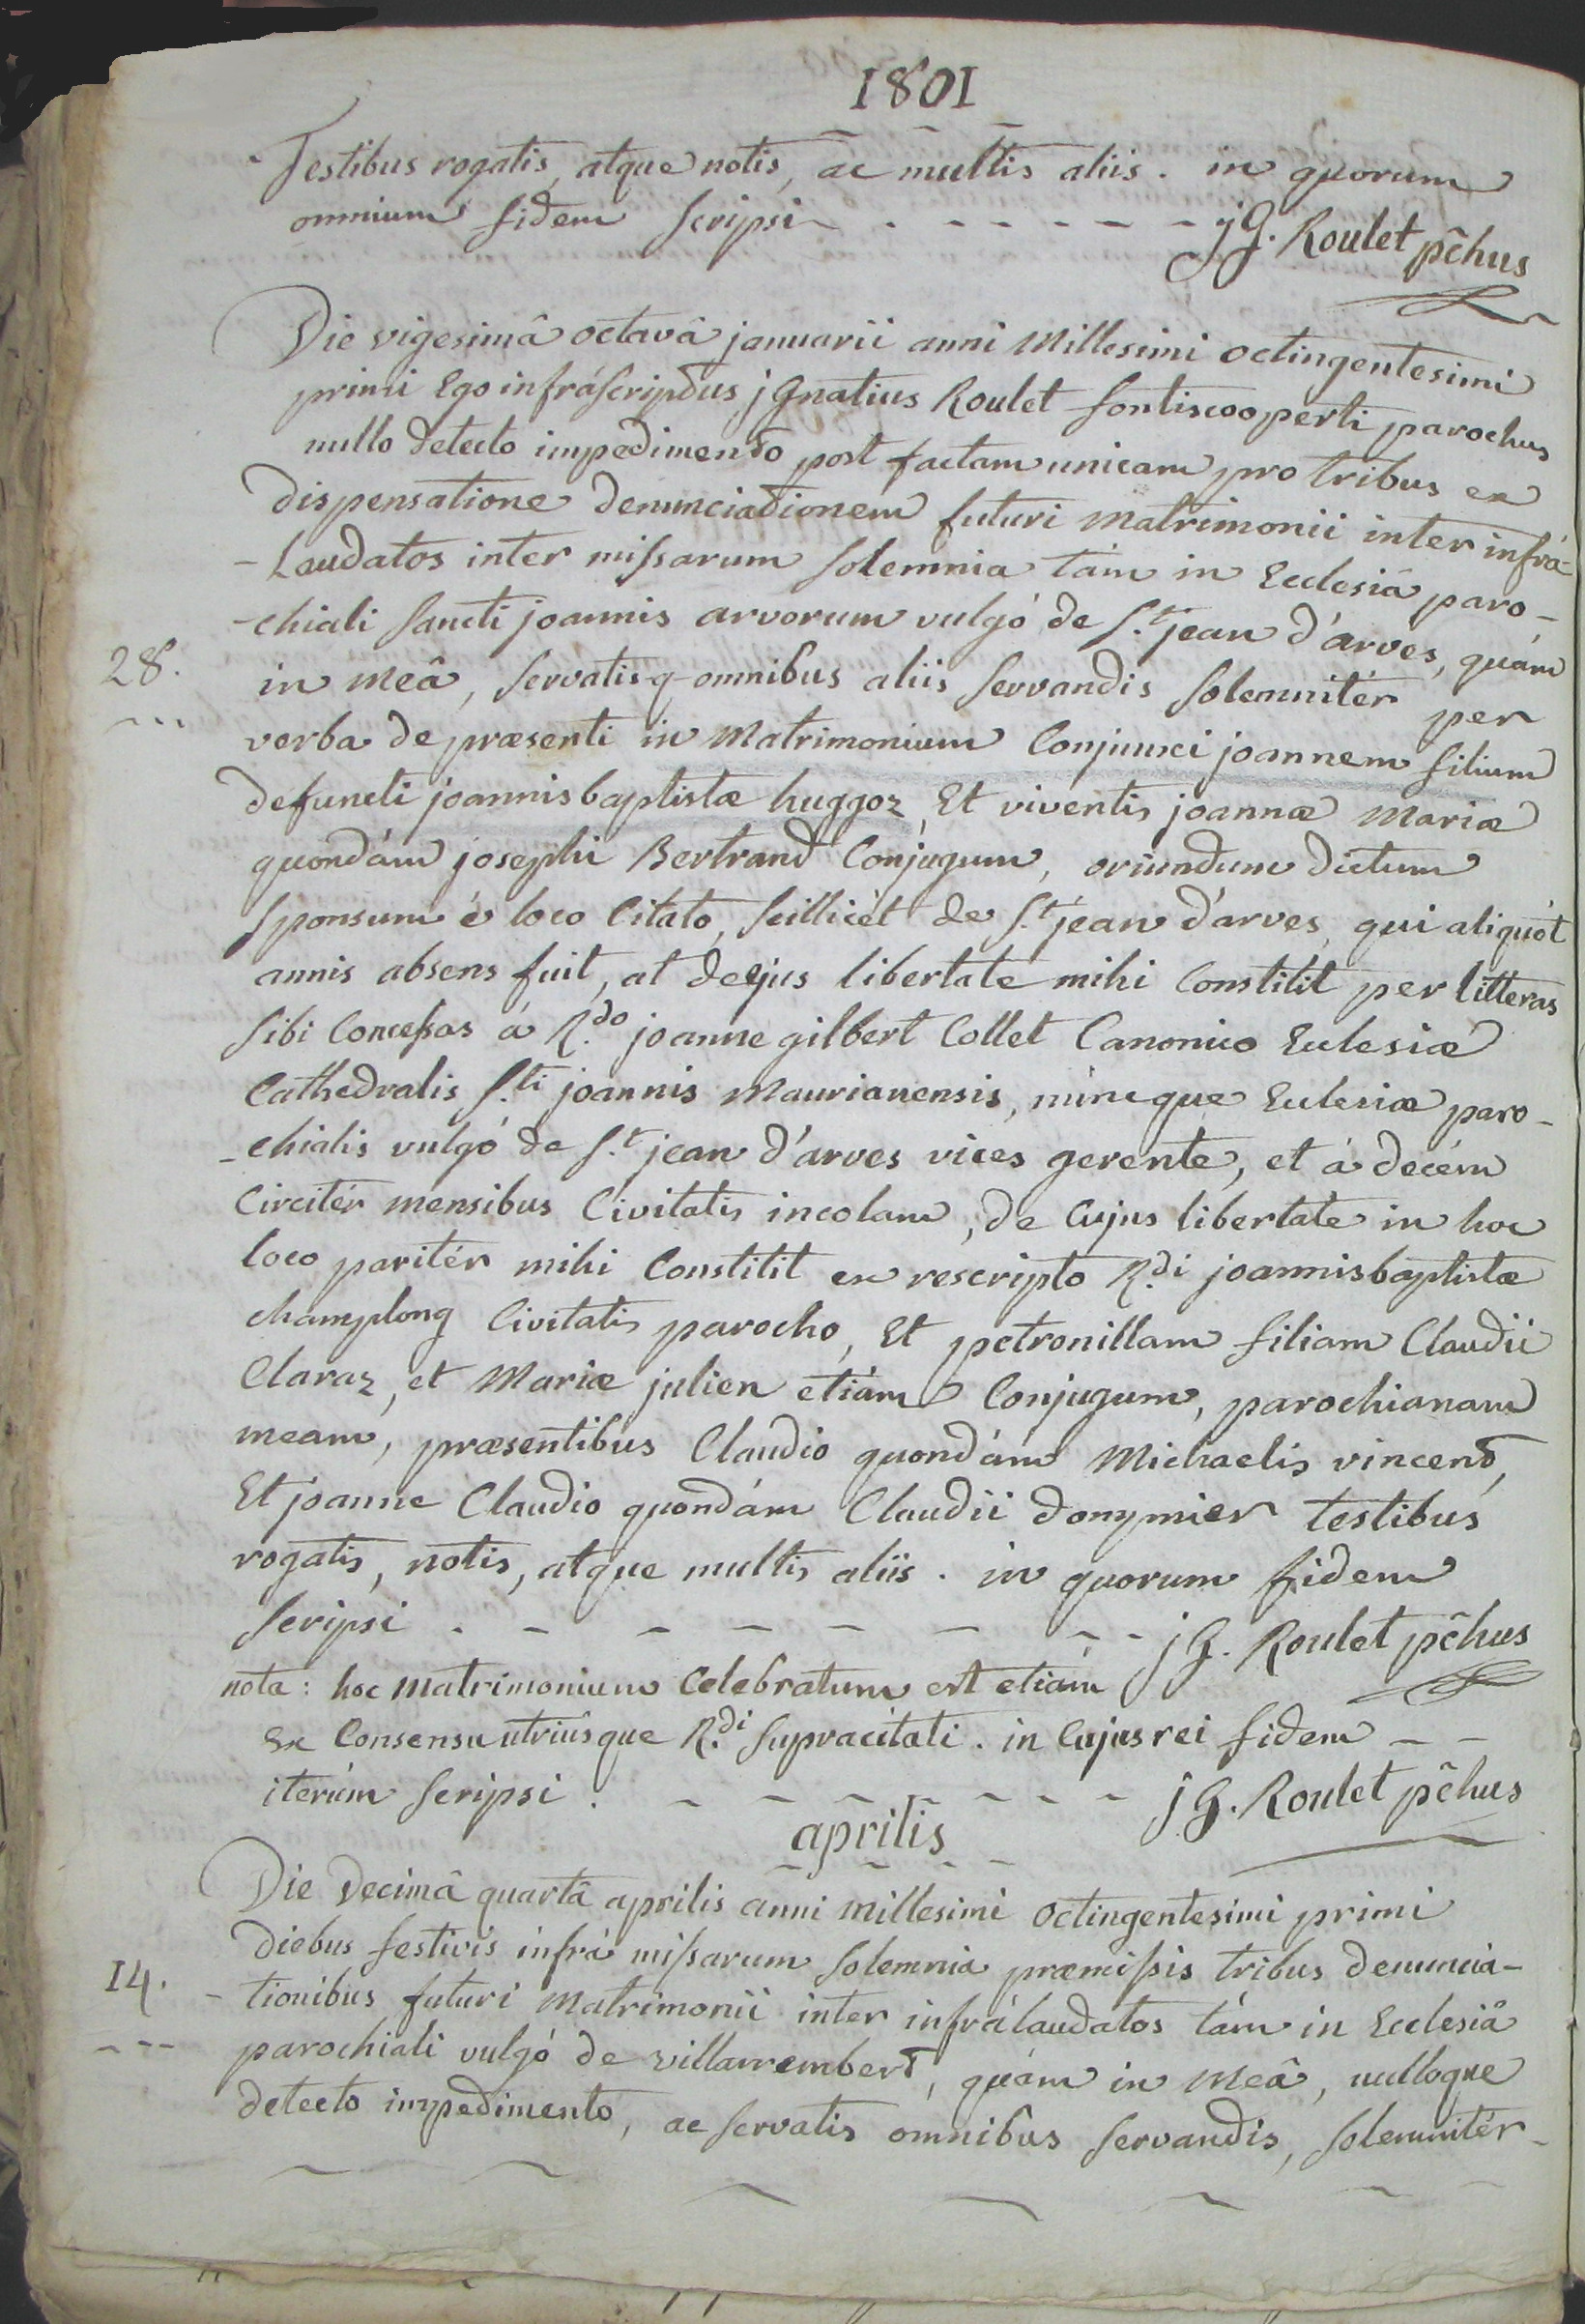 1801
Testibus rogatis, atque notis, ac multis aliis. in quorum
omnium fidem scripsi - - - - - - jG. Roulet pc̃hus
Die vigesimâ octavâ januarii anni Millesimi octingentesimi
primi Ego infráscriptus jgnatius Roulet fontiscooperti parochus
nullo detecto impedimento post factam unicam pro tribus ex
dispensatione denunciationem futuri Matrimonii inter infrá-
-Laudatos inter missarum solemnia tám in Ecclesiâ paro-
-chiali sancti joannis arvorum vulgó de S.t jean d'arves, quám
28. in meâ, servatis-q- omnibus aliis servandis solemnitér per
verba de præsenti in Matrimonium Conjunxi joannem filium
defuncti joannisbaptistæ huggoz, Et viventis joannæ Mariæ
quondám josephi Bertrand Conjugum, oriundum dictum
sponsum é loco Citato, scillicét de S.t jean d'arves, qui aliquót
annis absens fuit, at de ejus libertate mihi Constitit per litteras
sibi Concessas á R.do joanne gilbert Collet Canonico Ecclesiæ
Cathedralis S.ti joannis Maurianensis, núncque Ecclesiæ paro-
-chialis vulgó de S.t jean d'arves vices gerente, et á decém
Circitér mensibus Civitatis incolam, de Cujus libertate in hoc
loco paritér mihi Constitit ex rescripto R.di joannisbaptistæ
champlong Civitatis parocho, Et petronillam filiam Claudii
Claraz, et Mariæ julien etiám Conjugum, parochianam
meam, præsentibus Claudio quondám Michaelis vincent,
Et joanne Claudio quondám Claudii donymier testibus
rogatis, notis, atque multis aliis. in quorum fidem
scripsi . - - - - - - - jG. Roulet pc̃hus
nota: hoc Matrimonium Celebratum est etiám
Ex Consensu utriúsque R.di supracitati. in Cujus rei fidem - -
iterúm scripsi. - - - - - - - jG. Roulet pc̃hus
aprilis
Die decimâ quartâ aprilis anni Millesimi octingentesimi primi
diebus festivis infrá missarum solemnia præmissis tribus denuncia-
14. -tionibus futuri Matrimonii inter infrálaudatos tám in Ecclesiâ
parochiali vulgó de villarrembert, quám in Meâ, nulloque
detecto impedimento, ac servatis omnibus servandis, solemnitér-